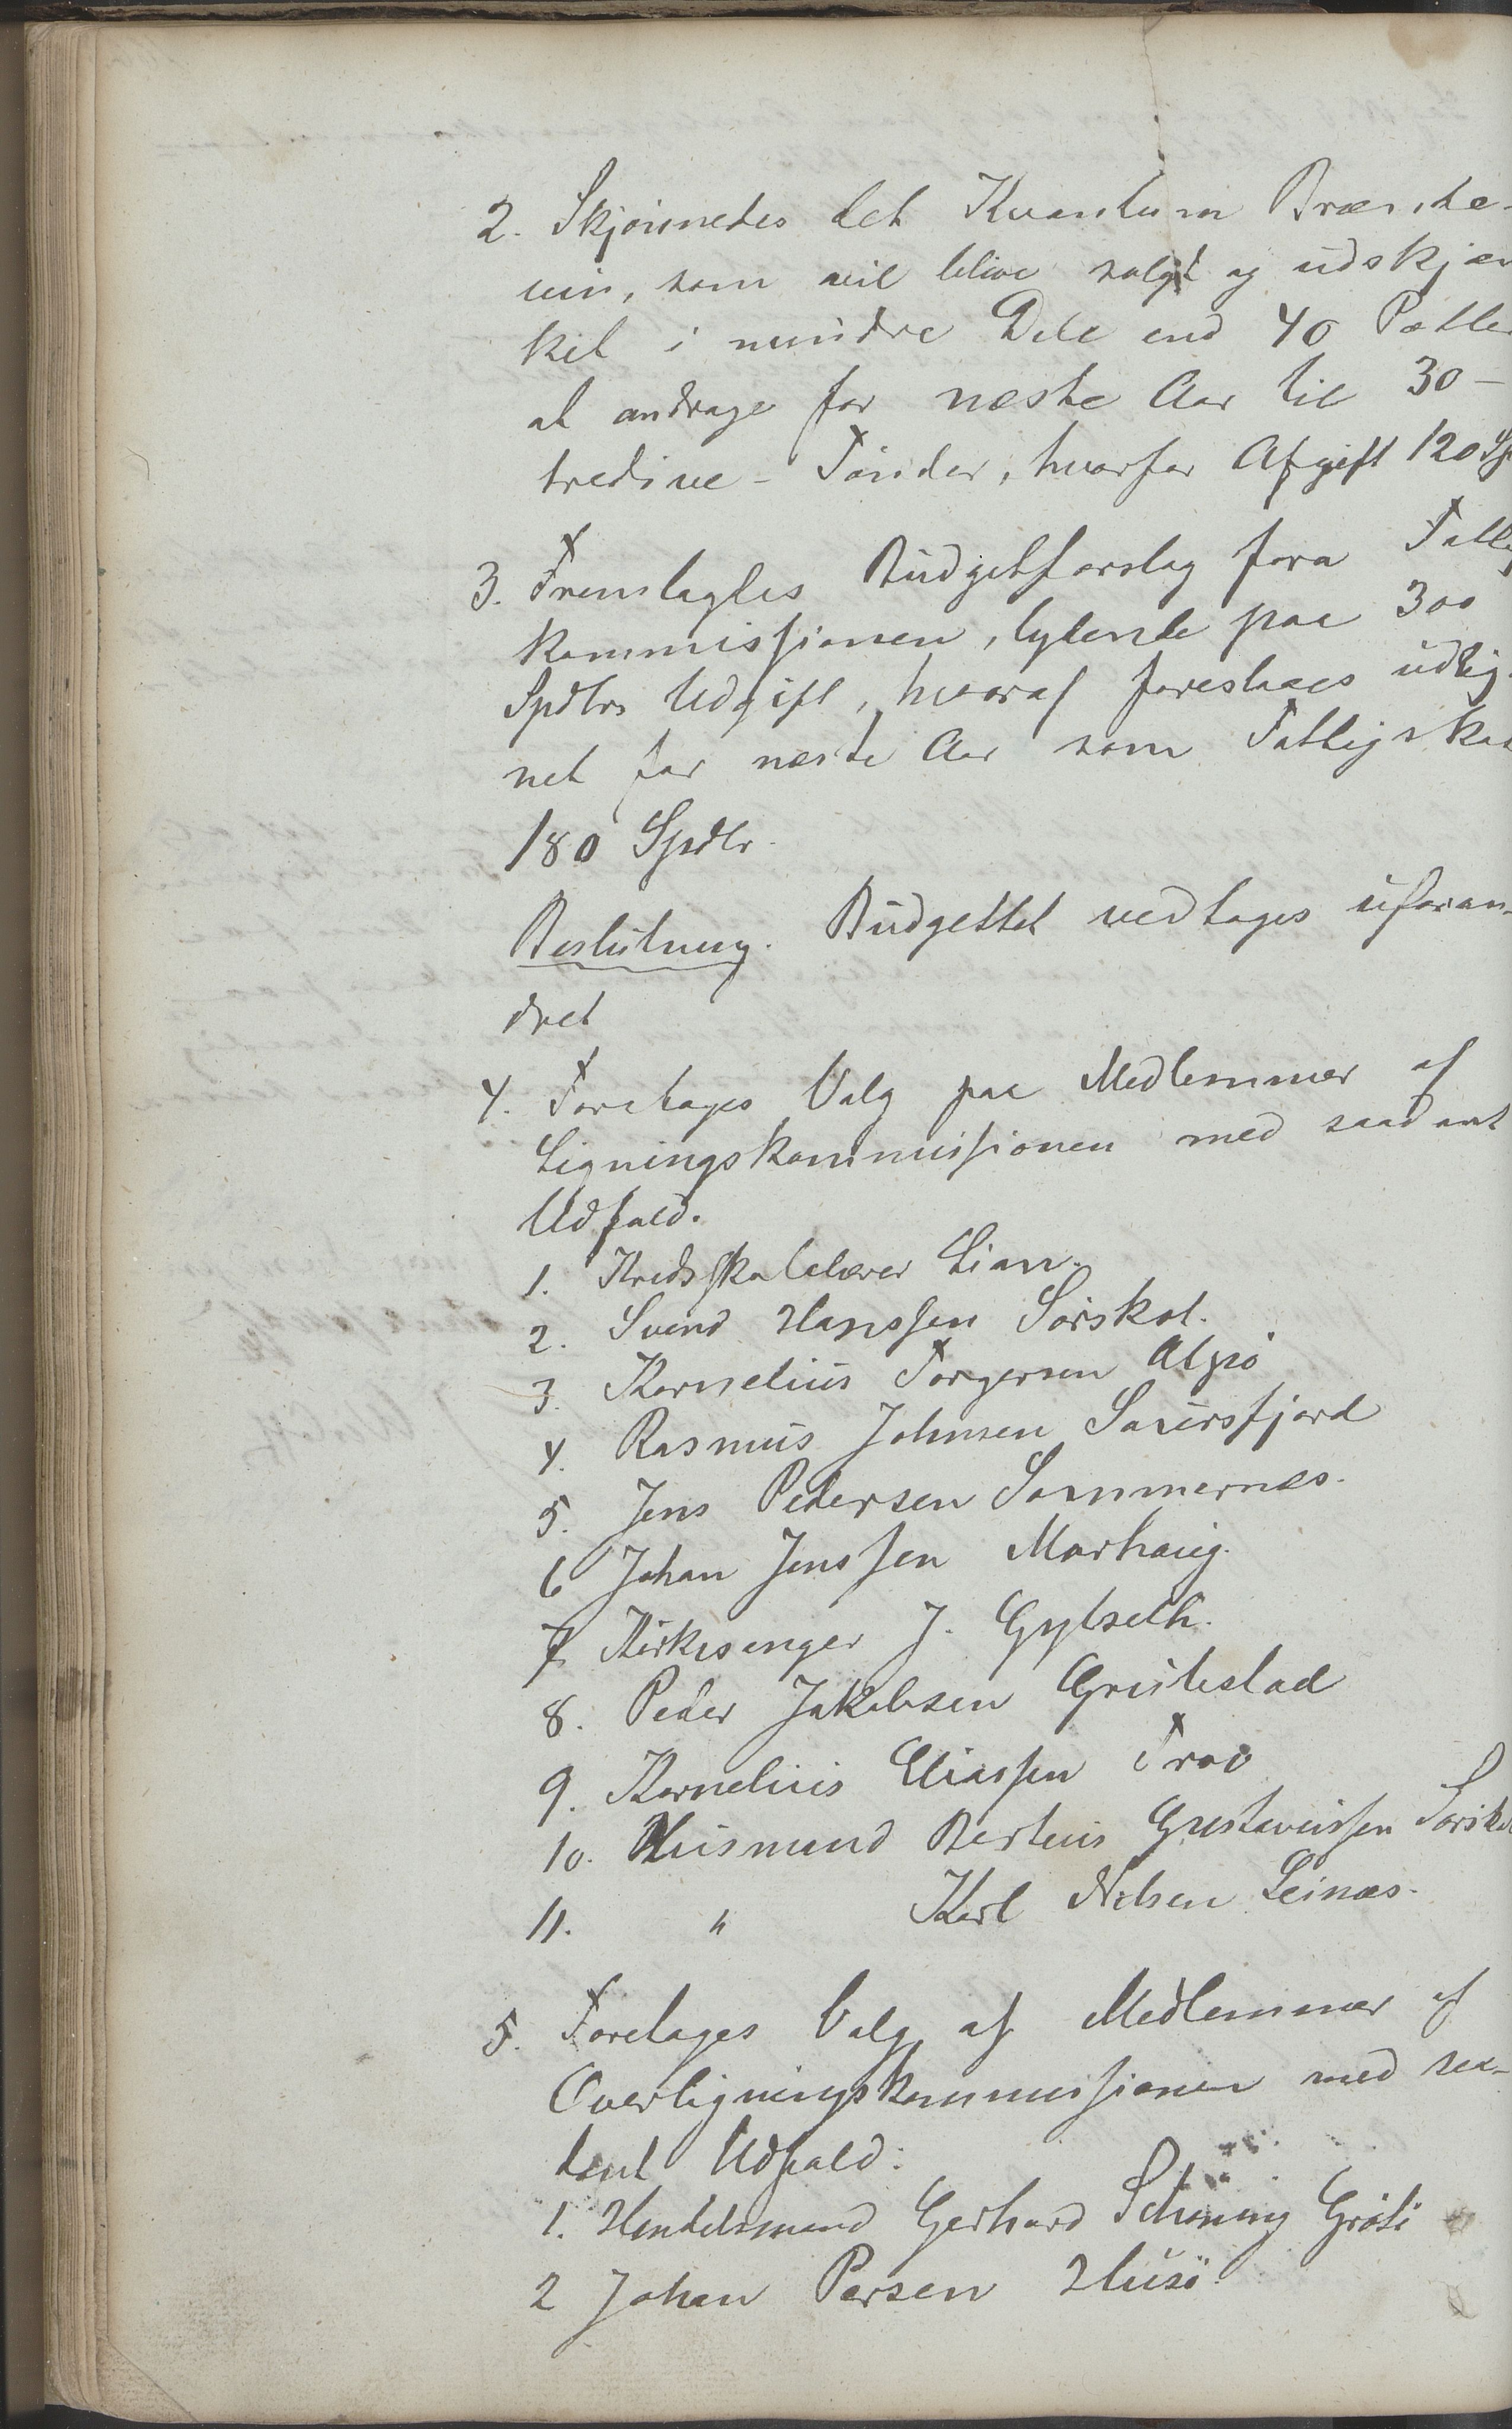 2. Skjønnedes det Kvantum Brænde-
vin, som vil blive solgt og udskjæn
ket i mindre Dele end 40 Potter
at andrage for næste Aar til 30 -
tredive - Tønder, hvorfor Afgift 120 Sp
3. Fremlagtes Budgetforslag fora Fattig
kommissionen, lydende paa 300
Spdlrs Udgift, hvoraf foreslaaes udlig-
net for næste Aar som Fattigskat
180 Spdlr.
Beslutning. Budgettet vedtages uforan-
dret
4. Foretages Valg paa Medlemmer af
Ligningskommissionen med saadant
Udfald.
1. Kredsskolelærer Lian.
2. Svend Hanssen Sørskot.
3. Kornelius Torgersen Alpsø
4. Rasmus Johnsen Saursfjord
5. Jens Pedersen Sommernæs.
6 Johan Jenssen Marhaug.
7 Kirkesanger J. Gylseth.
8. Peder Jakobsen Grutestad
9. Kornelius Eliassen Trao
10. Husmand Berteus Gustavussen Sørskot
11. " Karl Nelsen Leinæs.
5. Foretages Valg af Medlemmer af
Overligningskommissionen med saa-
dant Udfald:
1. Handelsmand Gerhard Schøning Grøtø
2 Johan Persen Husø.